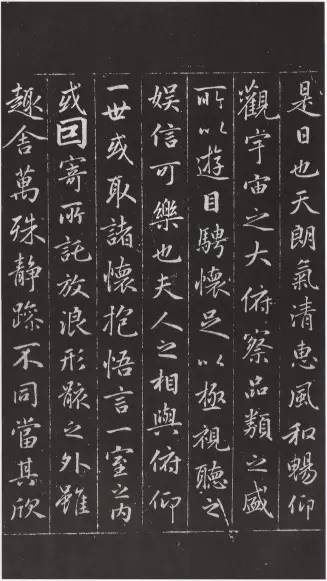 是日也天朗氣清惠風和暢仰
觀宇宙之大俯察品類之盛
所以遊目騁懷足以極視聽之
娛信可樂也夫人之相與俯仰
一世或取諸懷抱悟言一室之內
或囙寄所託放浪形骸之外雖
趣舍萬殊静躁不同當其欣